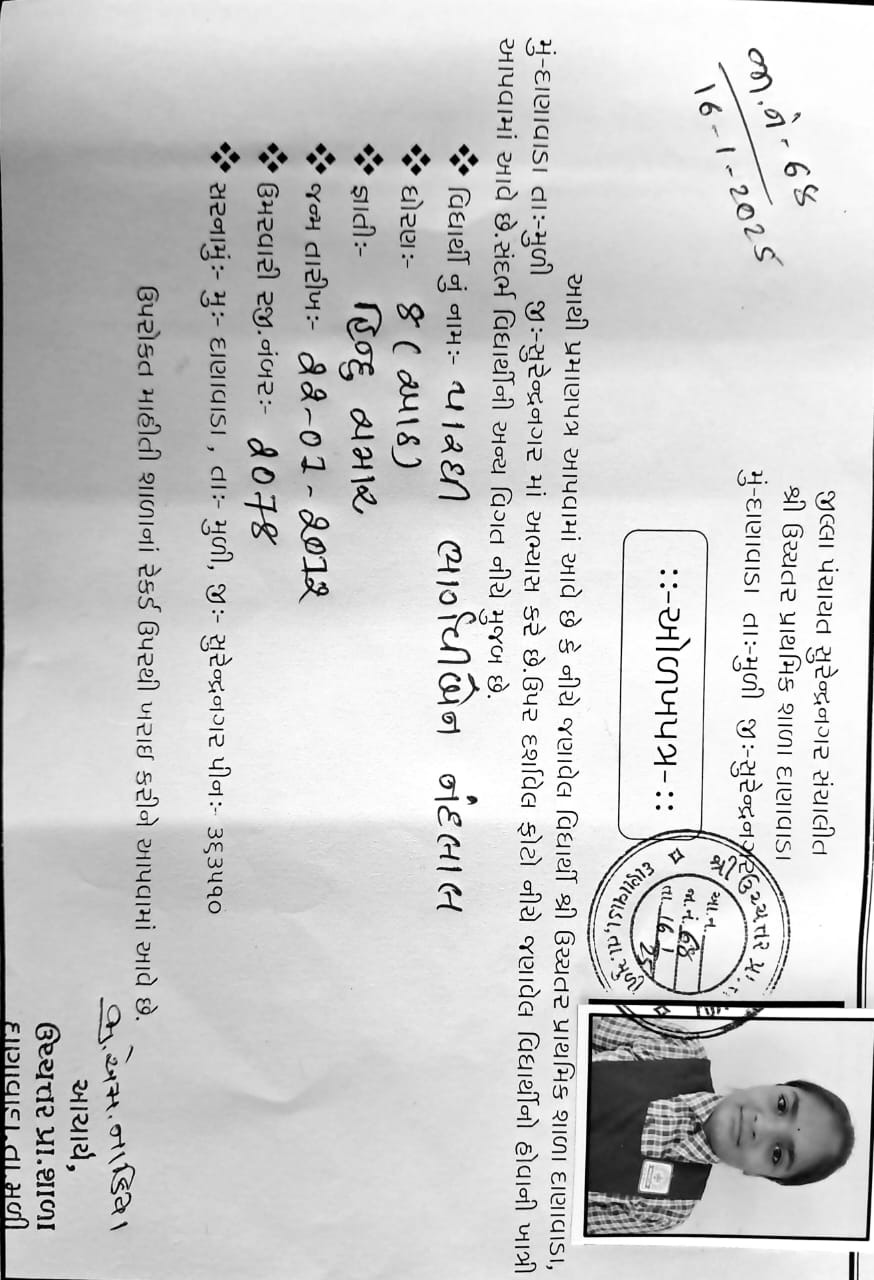 જીલ્લા પંચાયત સુરેન્દ્રનગર સંચાલીત
શ્રી ઉચ્ચતર પ્રાથમિક શાળા દાણાવાડા
મું-દાણાવાડા તાઃ-મુળી જીઃ-સુરેન્દ્રનગર
જા.નં - 68
16-1-2025
::-ઓળખપત્ર-::
આથી પ્રમાણપત્ર આપવામાં આવે છે કે નીચે જણાવેલ વિદ્યાર્થી શ્રી ઉચ્ચતર પ્રાથમિક શાળા દાણાવાડા,
મું-દાણાવાડા તાઃ-મુળી જીઃ-સુરેન્દ્રનગર માં અભ્યાસ કરે છે.ઉપર દર્શાવેલ ફોટો નીચે જણાવેલ વિદ્યાર્થીનો હોવાની ખાત્રી
આપવામાં આવે છે.સંદર્ભ વિદ્યાર્થીની અન્ય વિગત નીચે મુજબ છે.
❖ વિદ્યાર્થી નું નામઃ- પારઘી નંદલાલ
❖ ધોરણઃ- ૪ (આઠ)
❖ જ્ઞાતીઃ- હિન્દુ ચમાર
❖ જન્મ તારીખઃ- ૨૨-૦૧-૨૦૧૨
❖ ઉંમરવારી રજી.નંબરઃ- ૨૦૧૪
❖ સરનામુંઃ- મુઃ- દાણાવાડા , તાઃ- મુળી, જીઃ- સુરેન્દ્રનગર પીનઃ- ૩૬૩૫૧૦
ઉપરોક્ત માહીતી શાળાનાં રેકર્ડ ઉપરથી ખરાઇ કરીને આપવામાં આવે છે.
આચાર્ય,
ઉચ્ચતર પ્રા.શાળા
દાણાવાડા.તા મુળી
ઉચ્ચતર પ્રા.
દાણાવાડા, તા.
આ.ન.
જા.નં. 68
તા. 16 1 25